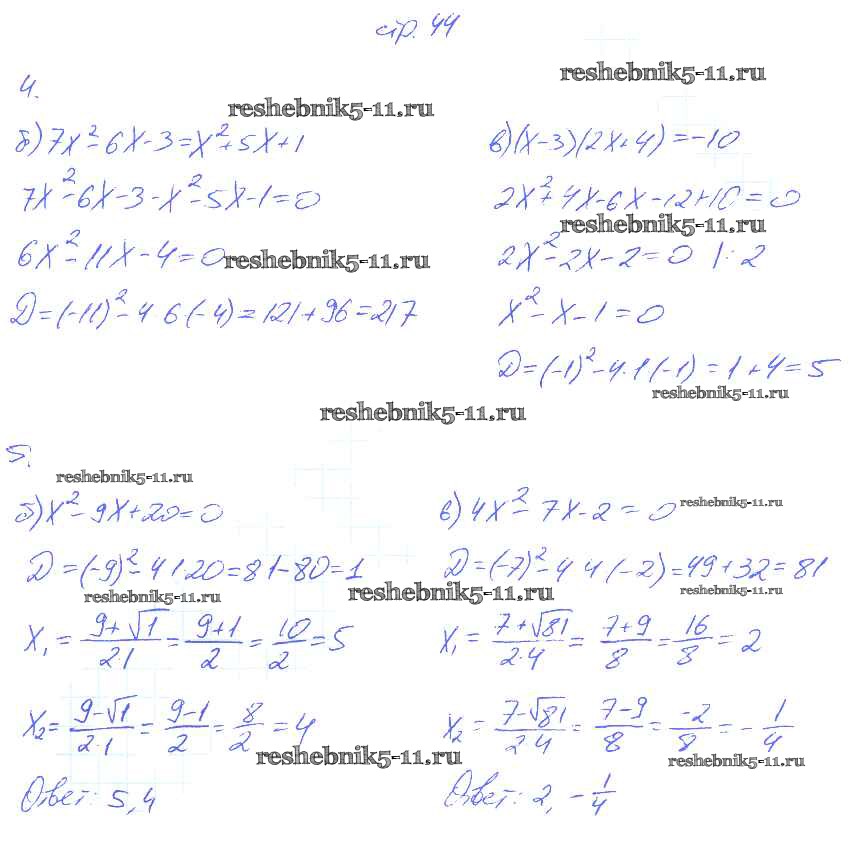 стр. 44
4.
reshebnik5-11.ru
reshebnik5-11.ru
б) 7x² - 6x - 3 = x² + 5x + 1
7x² - 6x - 3 - x² - 5x - 1 = 0
6x² - 11x - 4 = 0
reshebnik5-11.ru
D = (-11)² - 4 6 (-4) = 121 + 96 = 217
в) (x - 3)(2x + 4) = -10
2x² + 4x - 6x - 12 + 10 = 0
reshebnik5-11.ru
2x² - 2x - 2 = 0 | : 2
x² - x - 1 = 0
D = (-1)² - 4 · 1 (-1) = 1 + 4 = 5
reshebnik5-11.ru
reshebnik5-11.ru
5.
reshebnik5-11.ru
б) x² - 9x + 20 = 0
D = (-9)² - 4 1 · 20 = 81 - 80 = 1
reshebnik5-11.ru
reshebnik5-11.ru
x₁ = (9 + √1)/(2·1) = (9 + 1)/2 = 10/2 = 5
x₂ = (9 - √1)/(2·1) = (9 - 1)/2 = 8/2 = 4
reshebnik5-11.ru
Ответ: 5, 4
в) 4x² - 7x - 2 = 0
reshebnik5-11.ru
D = (-7)² - 4 4 (-2) = 49 + 32 = 81
reshebnik5-11.ru
x₁ = (7 + √81)/(2·4) = (7 + 9)/8 = 16/8 = 2
x₂ = (7 - √81)/(2·4) = (7 - 9)/8 = -2/8 = -1/4
reshebnik5-11.ru
Ответ: 2, -1/4